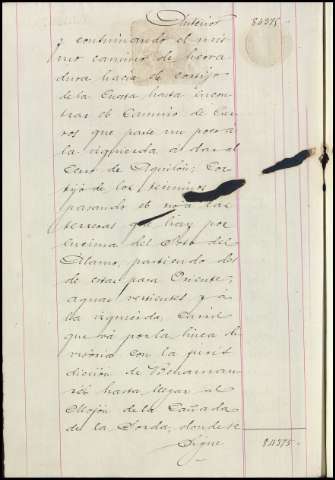 Anterior 84375.
y continuando el mis
mo camino de herra
dura hacia el cortijo
de la Cuesta hasta encon
trar el Camino de Car
ros que parte un poco a
la izquierda al dar al
Cerro de Aguilón; Cor
tijo de los términos
pasando el a las
terreras que hay por
encima del Soto del
Alamo, partiendo des
de estas para Oriente,
aguas vertientes y á
la izquierda,
que vá por la linea di
visoria con la juris
dicción de Benamau
rel hasta llegar al
Mojón de la Cañada
de la Sorda, donde se
Sigue 84375.